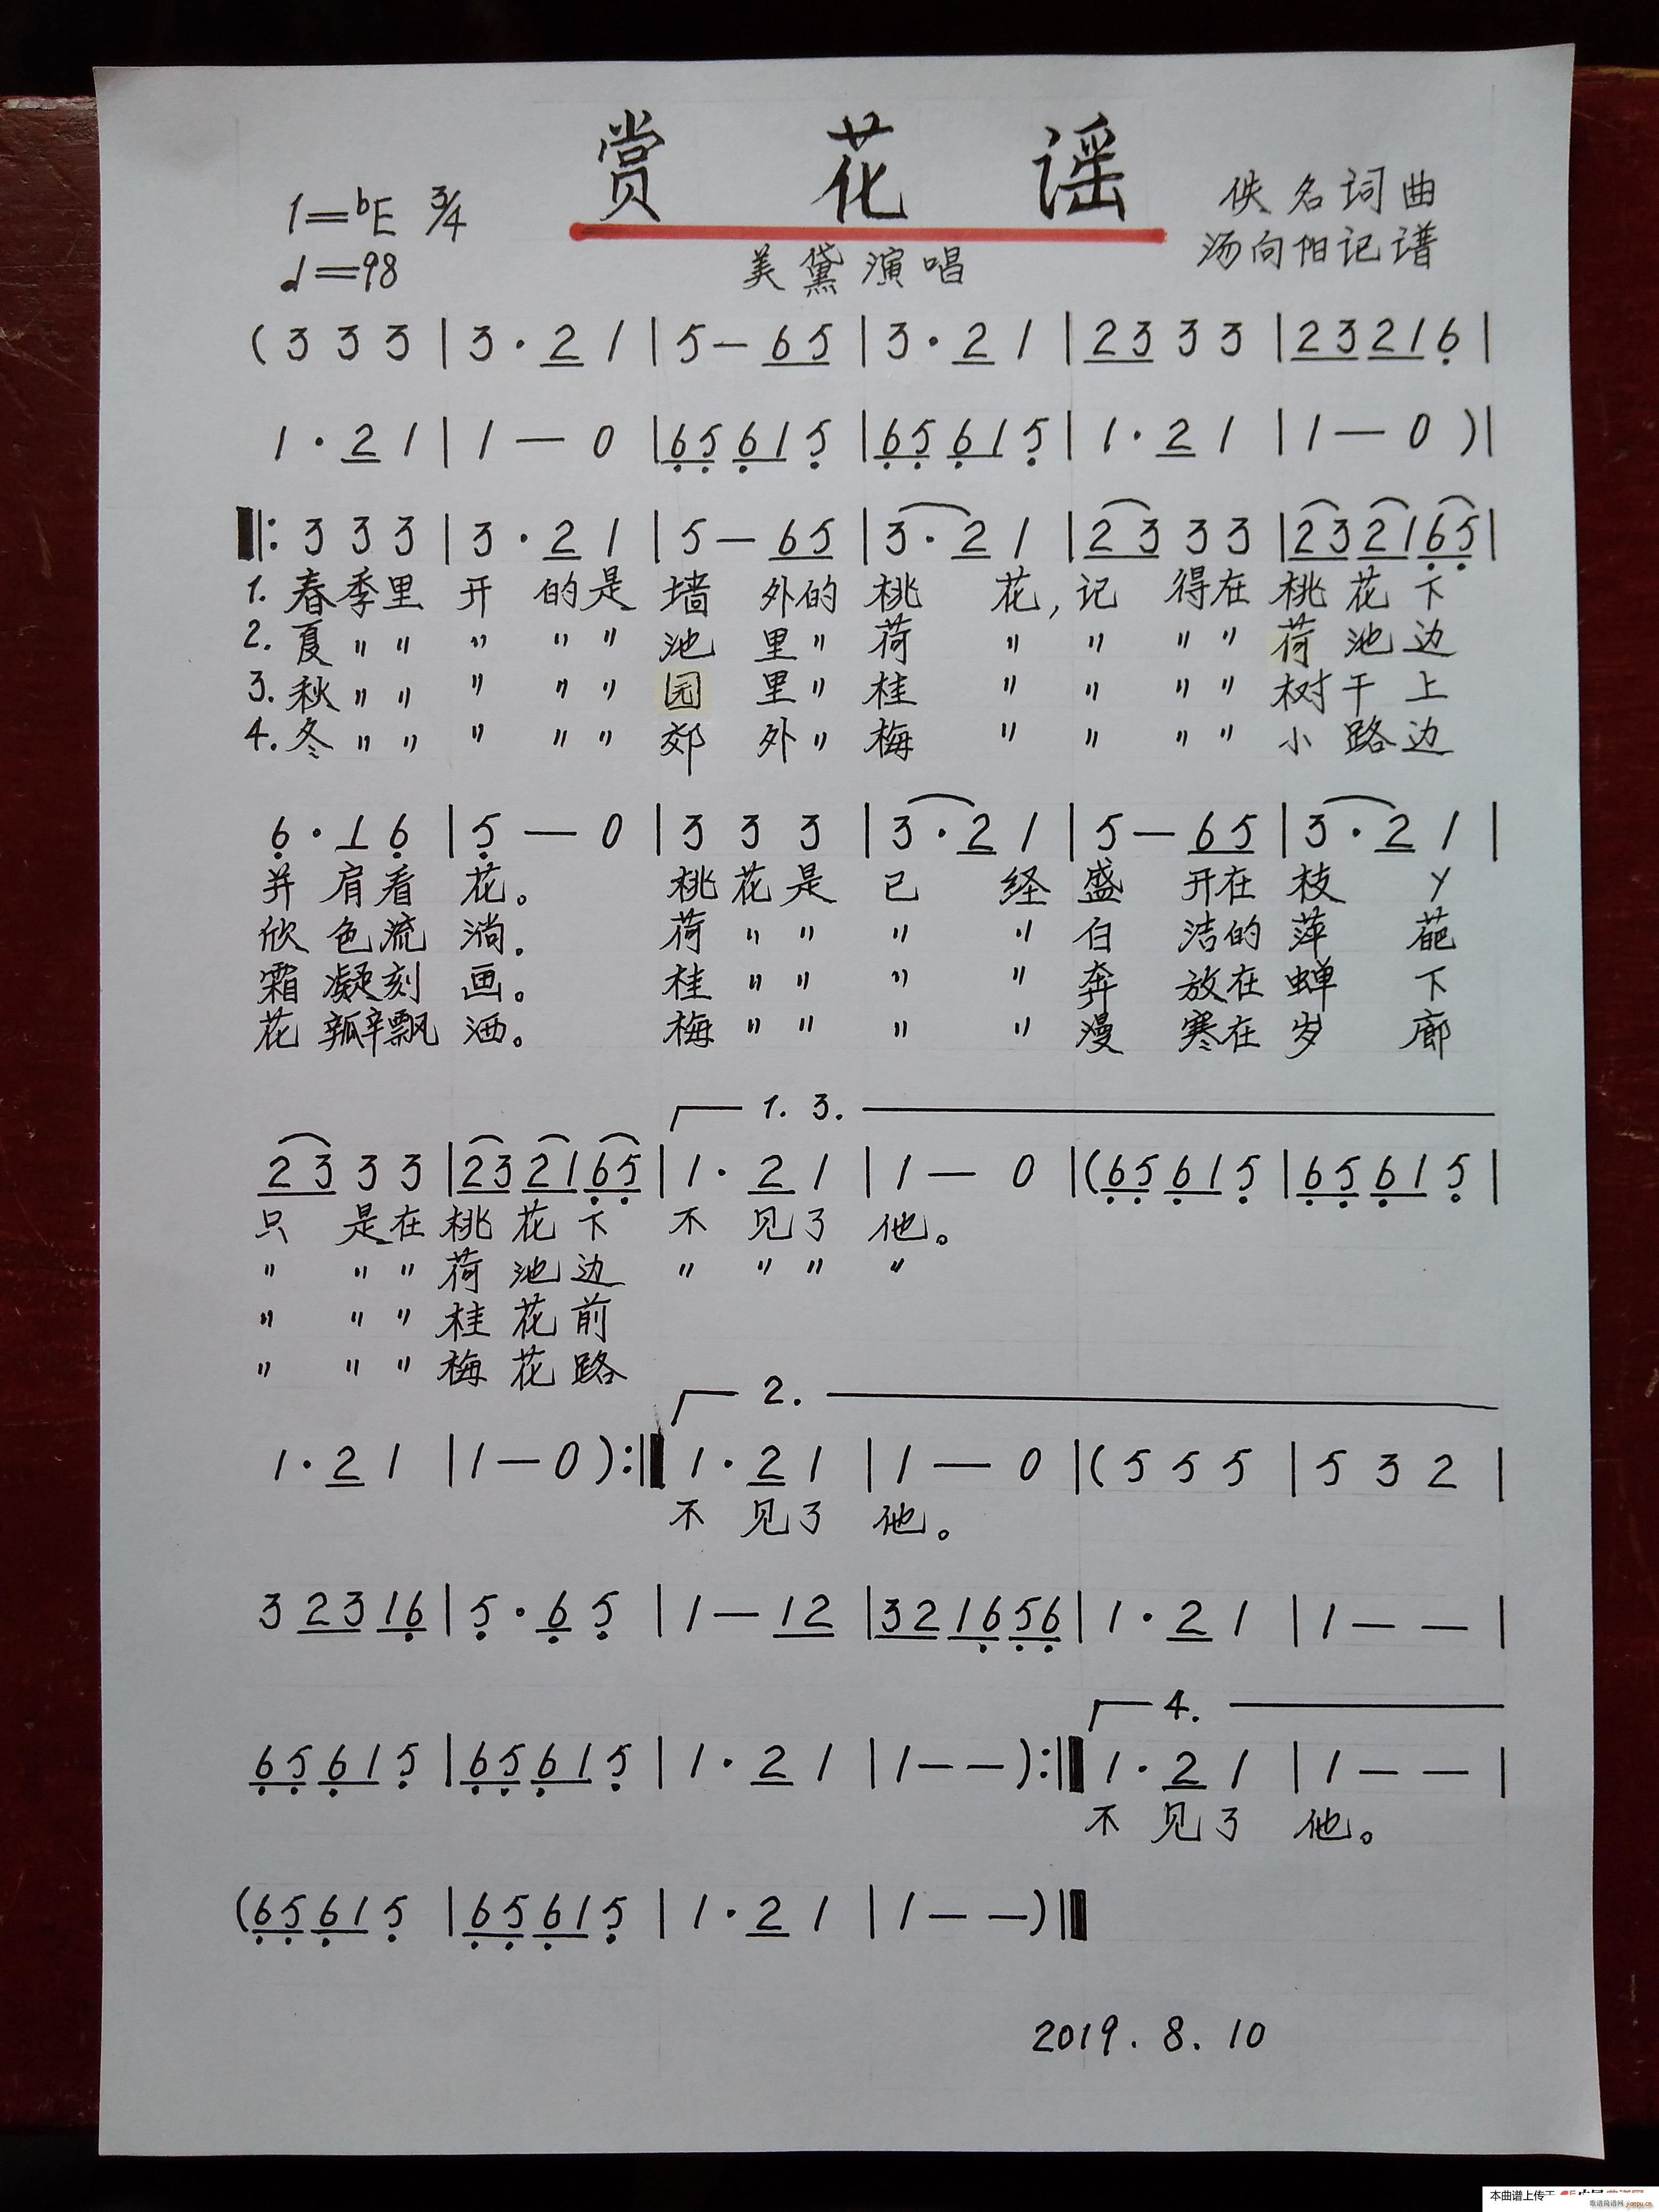 赏花谣
1=bE 3/4
佚名词曲
♩=98
美黛演唱
汤向阳记谱
(3 3 3 | 3 · 2 1 | 5 — 6 5 | 3 · 2 1 | 2 3 3 3 | 2 3 2 1 6 |
1 · 2 1 | 1 — 0 | 6 5 6 1 5 | 6 5 6 1 5 | 1 · 2 1 | 1 — 0 ) |
‖: 3 3 3 | 3 · 2 1 | 5 — 6 5 | 3 · 2 1 | 2 3 3 3 | 2 3 2 1 6 5 |
1. 春季里 开 的是 墙 外的 桃 花, 记 得在 桃花下
2. 夏 〃 〃 〃 〃 〃 池 里 〃 荷 〃 〃 〃 〃 荷池边
3. 秋 〃 〃 〃 〃 〃 园 里 〃 桂 〃 〃 〃 〃 树干上
4. 冬 〃 〃 〃 〃 〃 郊 外 〃 梅 〃 〃 〃 〃 小路边
6 · 1 6 | 5 — 0 | 3 3 3 | 3 · 2 1 | 5 — 6 5 | 3 · 2 1 |
并 肩看 花。 桃花是 已 经 盛 开在 枝 丫
欣 色流 淌. 荷 〃 〃 〃 〃 白 洁的 萍 葩
霜 凝刻 画。 桂 〃 〃 〃 〃 奔 放在 蝉 下
花 瓣飘 洒。 梅 〃 〃 〃 〃 漫 寒在 岁 廊
1. 3.
2 3 3 3 | 2 3 2 1 6 5 | 1 · 2 1 | 1 — 0 | (6 5 6 1 5 | 6 5 6 1 5 |
只 是在 桃花下 不 见了 他。
〃 〃 〃 荷池边 〃 〃 〃 〃
〃 〃 〃 桂花前
〃 〃 〃 梅花路
2.
1 · 2 1 | 1 — 0 ) :‖ 1 · 2 1 | 1 — 0 | (5 5 5 | 5 3 2 |
不 见了 他。
3 2 3 1 6 | 5 · 6 5 | 1 — 1 2 | 3 2 1 6 5 6 | 1 · 2 1 | 1 — — |
4.
6 5 6 1 5 | 6 5 6 1 5 | 1 · 2 1 | 1 — — ) :‖ 1 · 2 1 | 1 — — |
不 见了 他。
(6 5 6 1 5 | 6 5 6 1 5 | 1 · 2 1 | 1 — — ) ‖
2019. 8. 10
本曲谱上传于
歌谱简谱网 jianpu.cn